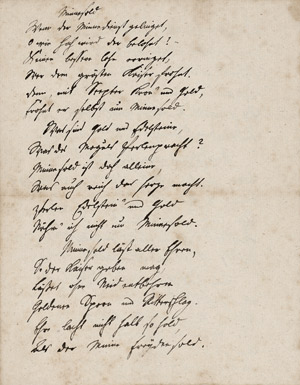 Minnesold
Wem der Minne Dienst gelinget,
O wie hoch wird der belohnt!
Keinen bessern Lohn erringet,
Wer dem größten Kaiser frohnt.
Denn, mit Scepter Kron' und Gold,
Frohnt er selbst um Minnesold.
Was sind Gold und Edelsteine
Was des Moguls Perlenpracht?
Minnesold ist doch alleine,
Was auch reich das macht.
Perlen Edelstein' und Gold
Nähm' ich nicht um Minnesold.
Minnesold läßt aller Ehren,
Die der Kaiser geben mag
Läßet ohne Neid entbehren
Goldene Sporn und Ritterschlag.
Ehre lacht nicht halb so hold,
Als der Minne Freudensold.